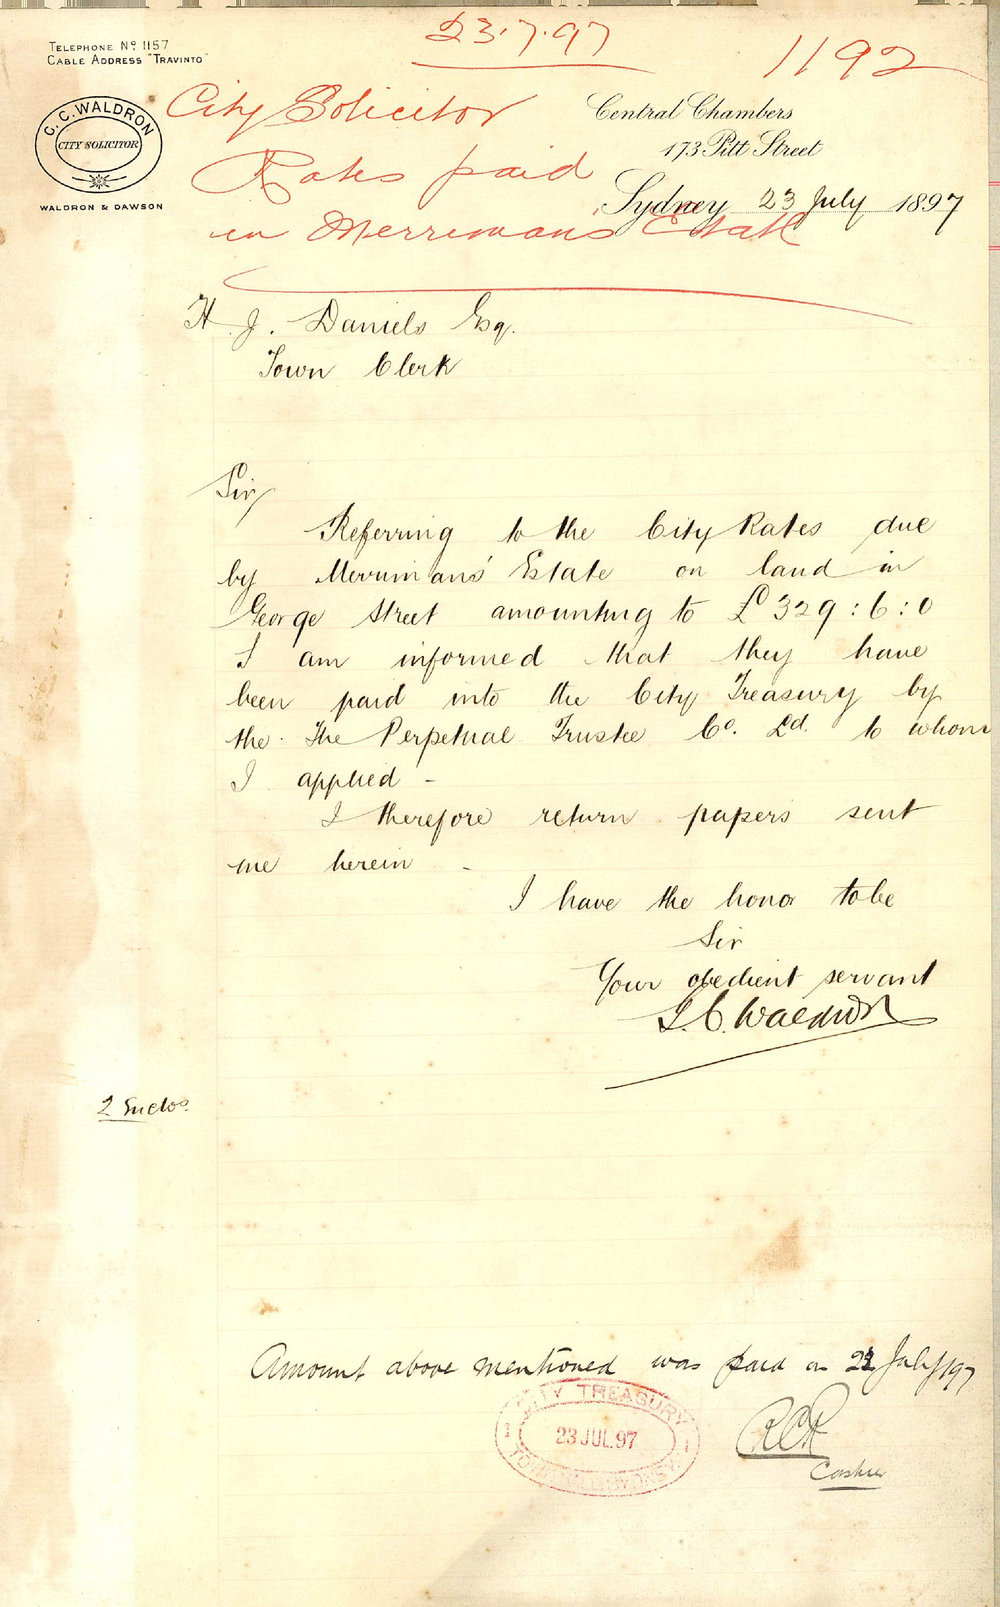 23.7.97
1192
TELEPHONE No 1157
CABLE ADDRESS "TRAVINTO"
C. C. WALDRON
CITY SOLICITOR
WALDRON & DAWSON
City Solicitor
Rates paid
in Merriman's Estate
Central Chambers
173 Pitt Street
Sydney 23 July 1897
H. J. Daniels Esq.
Town Clerk
Sir,
Referring to the City Rates due
by Merrimans' Estate on land in
George Street amounting to £329:6:0
I am informed that they have
been paid into the City Treasury by
the The Perpetual Trustee Co. Ld. to whom
I applied -
I therefore return papers sent
me herein -
I have the honor to be
Sir
Your obedient servant
C. C. Waldron
2 Enclos.
Amount above mentioned was paid on July /97
CITY TREASURY
23 JUL.97
TOWN HALL SYDNEY
RCR
Cashier